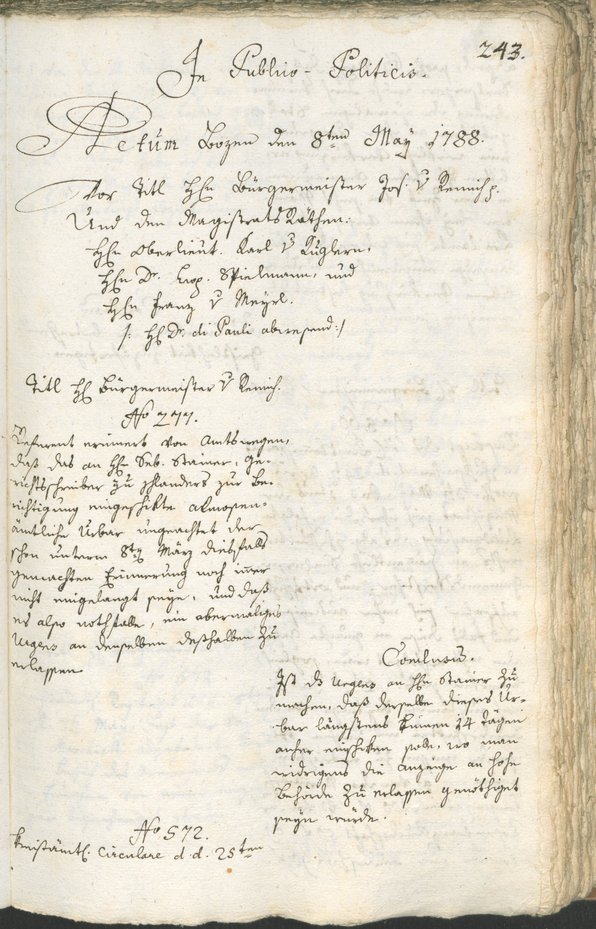 243.
In Publico-Politicis.
Actum Bozen den 8ten May 1788.
Vor Titl Hhn Bürgermeister Jos. v Remich p.
Und den Magistrats Räthen:
Hhn Oberlieut. Karl v Kuglern,
Hhn Dr. Leop. Spielmann, und
Hhn Franz v Meyrl.
/: Hh Dr. di Pauli abwesend :/
Titl Hh Bürgermeister v Remich.
No 277.
Referent erinnert von Amtswegen,
daß das an Hhn Seb. Stainer, Ge-
richtsschreiber zu Schlanders zur be-
richtigung eingeschikte almosen-
ämtliche Urbar ungeachtet der
schon unterm 8ten März diesfalls
gemachten Erinnerung noch im̅er
nicht eingelangt seye, und daß
es also nothfalle, ein abermaliges
Urgens an denselben deßhalben zu
erlassen.
Conclusum.
Ist das Urgens an Hhn Stainer zu
machen, daß derselbe dieses Ur-
bar längstens binnen 14 Tägen
anher einschiken solle, wo man
widrigens die Anzeige an hohe
Behörde zu erlassen genöthiget
seyn würde.
No 572.
Kreisämtl. Circulare d. d. 25ten